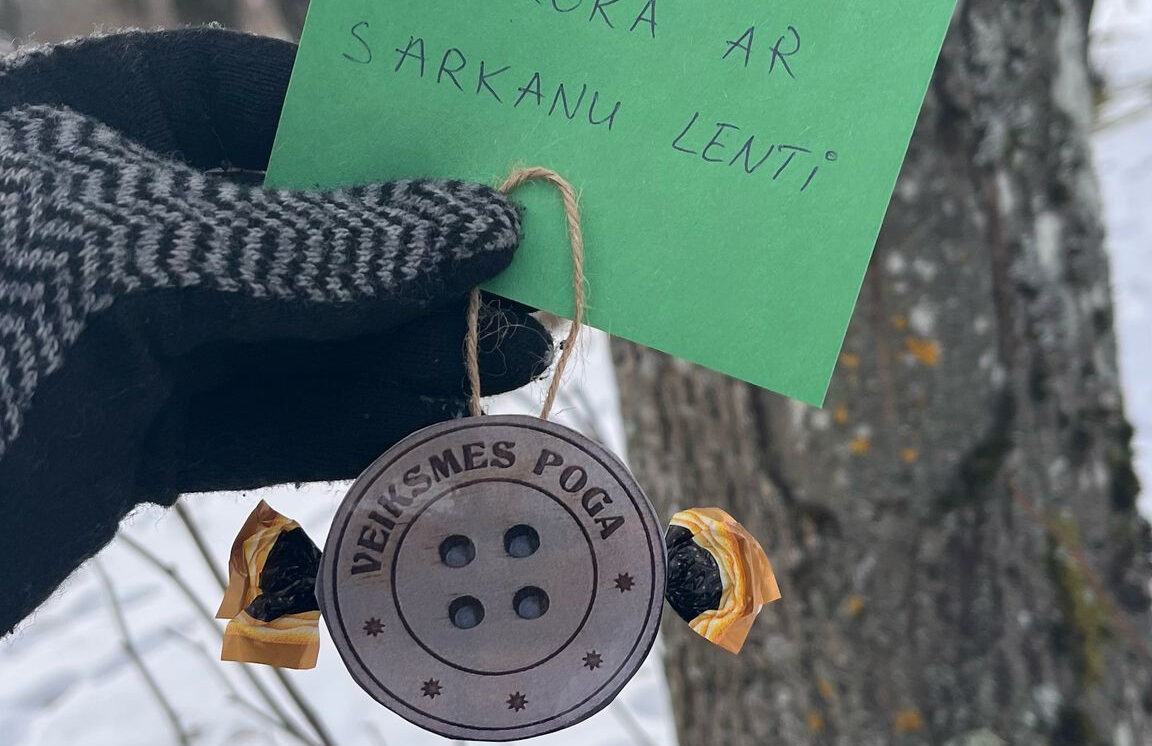 AR
SARKANU LENTi
VEIKSMES POGA